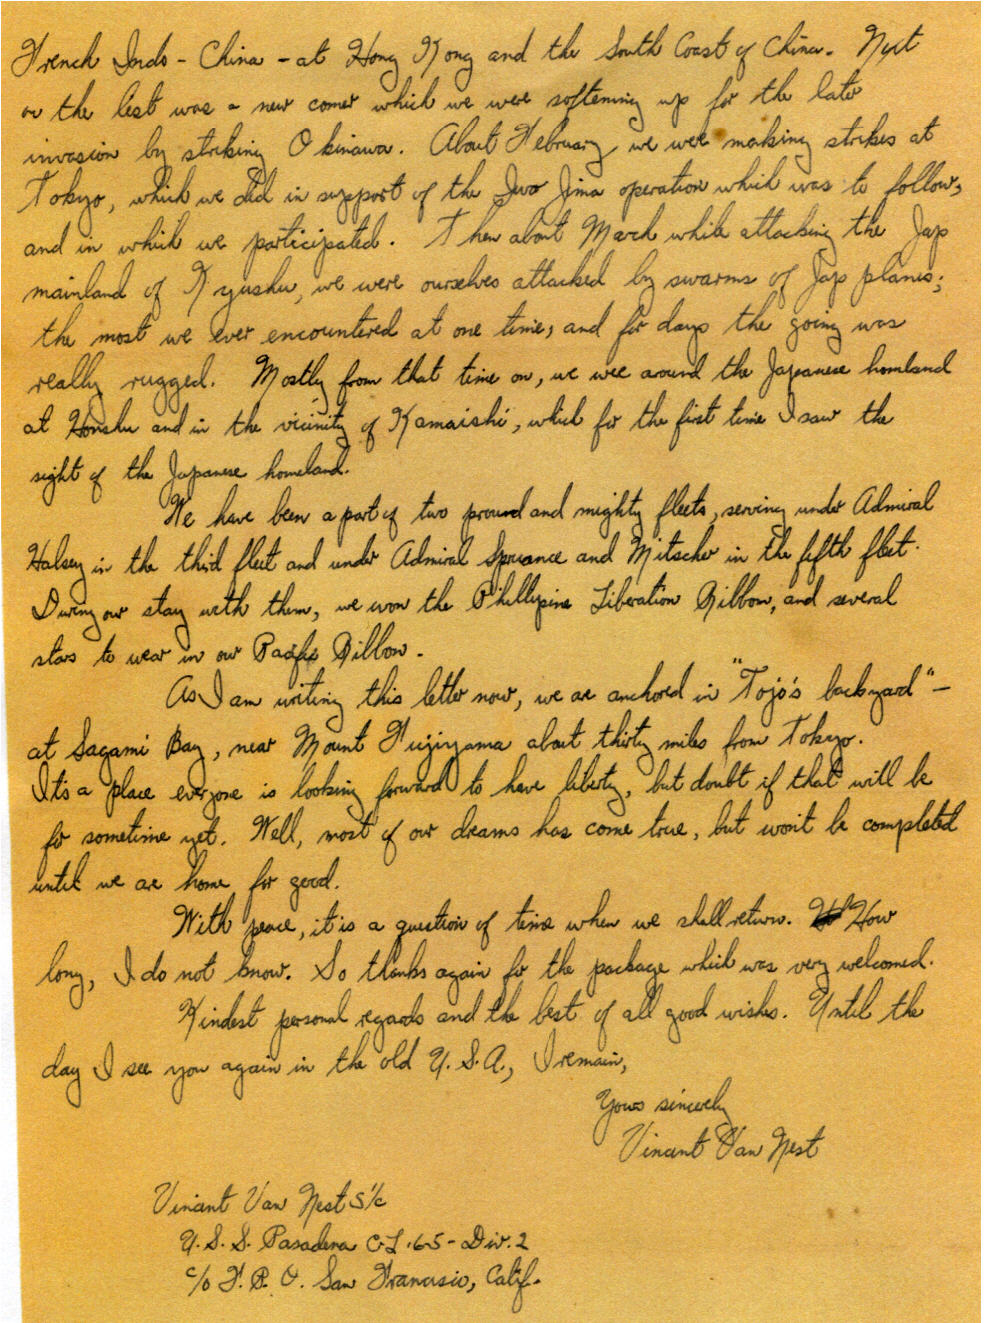 French Indo - China - at Hong Kong and the South Coast of China. Next
on the list was a new comer which we were softening up for the later
invasion by striking Okinawa. About February we were making strikes at
Tokyo, which we did in support of the Iwo Jima operation which was to follow,
and in which we participated. Then about March while attacking the Jap
mainland of Kyushu, we were ourselves attacked by swarms of Jap planes;
the most we ever encountered at one time, and for days the going was
really rugged. Mostly from that time on, we wee around the Japanese homeland
at Honshu and in the vicinity of Kamaishi, which for the first time I saw the
sight of the Japanese homeland.
We have been a part of two pround and mighty fleets, serving under Admiral
Halsey in the third fleet and under Admiral Spruance and Mitscher in the fifth fleet.
During our stay with them, we won the Phillipine Liberation Ribbon, and several
stars to wear in our Pacific Ribbon.
As I am writing this letter now, we are anchored in "Tojo's backyard" -
at Sagami Bay, near Mount Fujiyama about thirty miles from Tokyo.
It's a place everyone is looking forward to have liberty, but doubt if that will be
for sometime yet. Well, most of our dreams has come true, but won't be completed
until we are home for good.
With peace, it is a question of time when we shall return. How
long, I do not know. So thanks again for the package which was very welcomed.
Kindest personal regards and the best of all good wishes. Until the
day I see you again in the old U.S.A., I remain,
Yours sincerely
Vincent Van Nest
Vincent Van Nest S1/c
U.S.S. Pasadena C.L. 65 - Div. 2
c/o F.P.O. San Francisco, Calif.